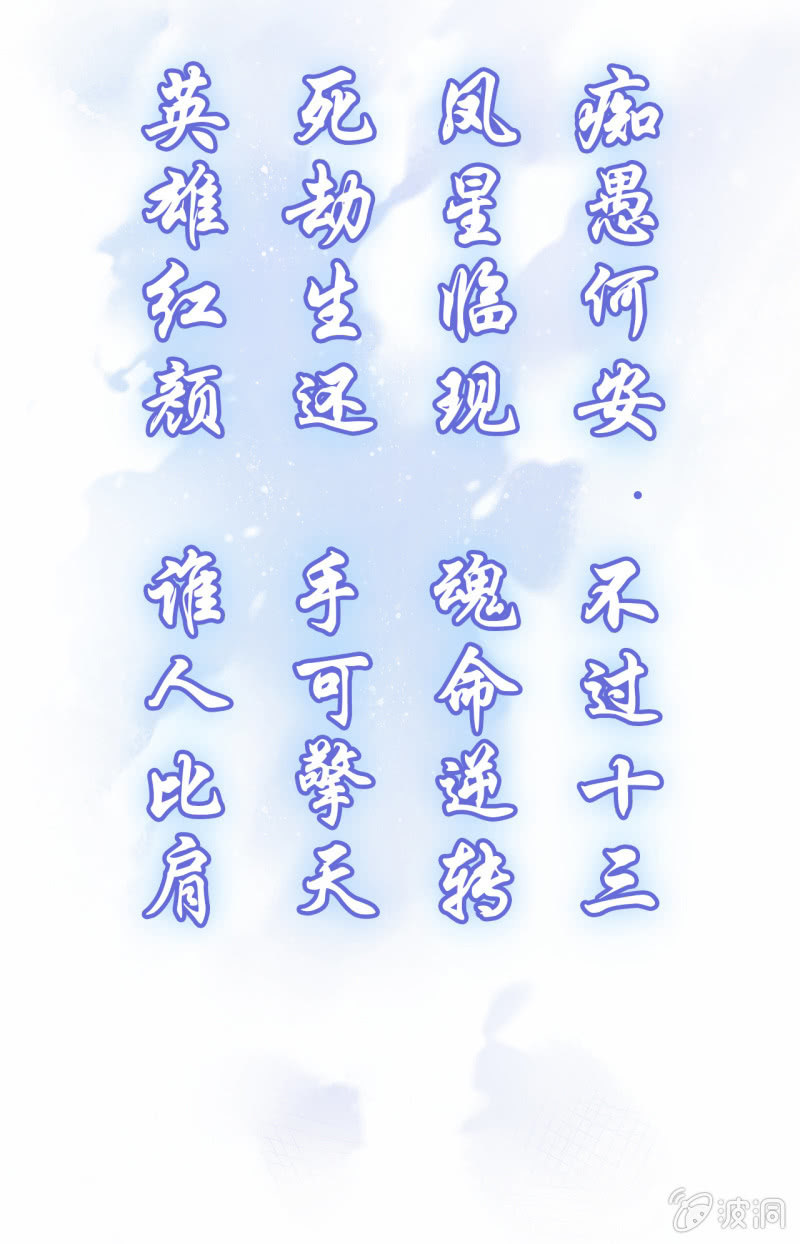 痴愚何安·不过十三
凤星临现 魂命逆转
死劫生还 手可擎天
英雄红颜 谁人比肩
波洞